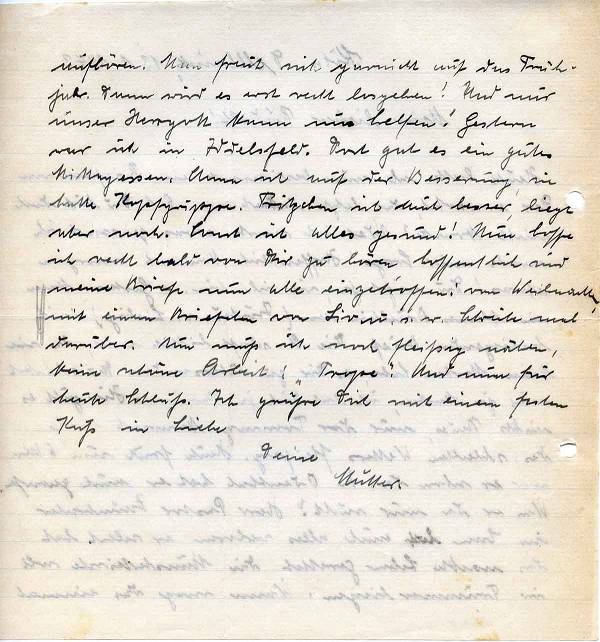 aufhören. Man freut sich garnicht auf das Früh-
jahr. Dann wird es erst recht losgehen! Und nur
unser Herrgott kann uns helfen! Gestern
war ich in Idielsfeld. Dort gab es ein gutes
Mittagessen. Anna ist auf der Besserung sie
hatte Kopfgrippe. Fritzchen ist auch besser, liegt
aber noch. Sonst ist alles gesund! Nun hoffe
ich recht bald von Dir zu hören hoffentlich sind
meine Briefe nun alle eingetroffen! von Weihnachten,
mit einem Briefchen von u. s. w. Schreibe mal
darüber. Nun muß ich noch fleißig nähen,
keine schöne Arbeit! Und nun für
heute Schluß. Ich grüße Dich mit einem festen
Kuß in Liebe
Deine
Mutter.